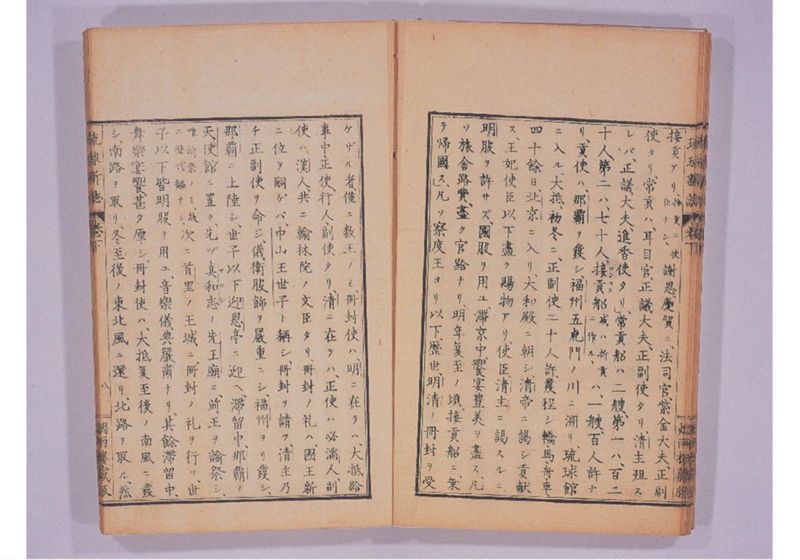 接貢アリ、接貢ニ使臣ナシ、謝恩慶賀ニ、法司官紫金大夫、正副
使タリ、常貢ハ耳目官、正議大夫、正副使タリ、清主殂ス
レバ、正議大夫、進香使タリ、常貢船ハ二艘、第一ハ百二
十人、第二ハ七十人、接貢船ハ一艘百人許ナ
リ、貢使ハ、那覇ヲ發シ福州五虎門ノ川ニ溯リ、琉球館
ニ入ル、大抵初冬ニ、正副使二十人許、慶程シ、轎馬舟車
四十餘日北京ニ入リ、大和殿ニ朝シ清帝ニ謁シ貢献
ス、王妃使臣以下盡ク賜物アリ、使臣清主ニ謁スルニ
明服ヲ許サズ、國服ヲ用ユ、滞京中饗宴豊美ヲ盡ス、凡
ソ旅舎路費盡ク官給ナリ、明年夏至ノ頃接貢船ニ乗
テ歸國ス、凡ソ察度王ヨリ以下、歴世明清ノ冊封ヲ受
ケザル者僅ニ數王ノミ、冊封使ハ明ニ在テハ大抵給
事中正使行人副使タリ、清ニ在テハ、正使ハ必滿人、副
使ハ漢人、共ニ翰林院ノ文臣タリ、冊封ノ礼ハ國王新
ニ位ヲ嗣ゲバ、中山王世子ト稱シ、冊封ヲ請フ、清主乃
チ正副使ヲ命ジ、儀衛服飾ヲ嚴重ニシ、福州ヨリ發シ、
那覇ニ上陸シ、世子以下迎恩亭ニ迎ヘ、滞留中、那覇ノ
天使館ニ置ク、先ヅ真和志ノ先王廟ニ前王ヲ諭祭シ、
次ニ首里ノ王城ニ冊封ノ礼ヲ行フ、世
子以下皆明服ヲ用ユ、音樂儀典嚴肅ナリ、其餘滞留中、
舞樂宴饗甚タ厚シ、冊封使ハ大抵夏至後ノ南風ニ發
シ南路ヲ取リ、冬至後ノ東北風ニ還リ北路ヲ取ル、然
卷下
八